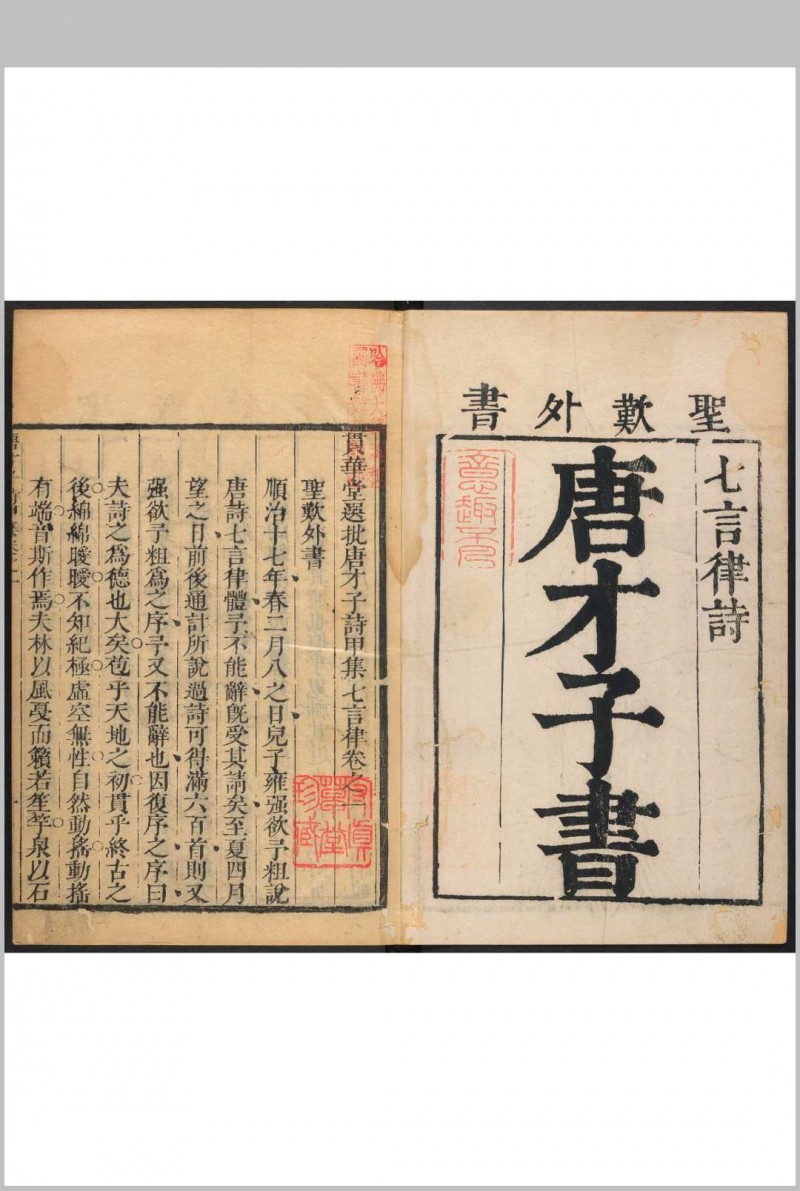 聖歎外書
七言律詩
唐才子書
貫華堂選批唐才子詩甲集七言律卷之一
聖歎外書
順治十七年春二月八之日兒子雍强欲予粗說
唐詩七言律體予不能辭旣受其請矣至夏四月
望之日前後通計所說過詩可得滿六百首則又
强欲予粗爲之序予又不能辭也因復序之序曰
夫詩之爲德也大矣苞乎天地之初貫乎終古之
後綿綿曖曖不知紀極虛空無性自然動搖動搖
有端音斯作焉夫林以風戛而籟若笙竽泉以石